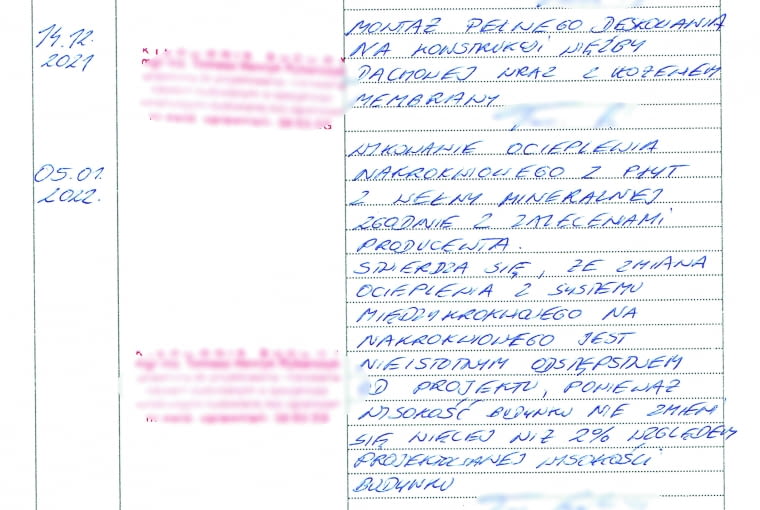 14.12.
2021
MONTAŻ PEŁNEGO DESKOWANIA
NA KONSTRUKCJI WIĘŹBY
DACHOWEJ WRAZ Z UŁOŻENIEM
MEMBRANY
05.01.
2022.
WYKONANIE OCIEPLENIA
NAKROKWIOWEGO Z PŁYT
Z WEŁNY MINERALNEJ
ZGODNIE Z ZALECENIAMI
PRODUCENTA.
STWIERDZA SIĘ, ŻE ZMIANA
OCIEPLENIA Z SYSTEMU
MIĘDZYKROKWIOWEGO NA
NAKROKWIOWEGO JEST
NIEISTOTNYM ODSTĘPSTWEM
OD PROJEKTU, PONIEWAŻ
WYSOKOŚĆ BUDYNKU NIE ZMIENI
SIĘ WIĘCEJ NIŻ 2% WZGLĘDEM
PROJEKTOWANEJ WYSOKOŚCI
BUDYNKU